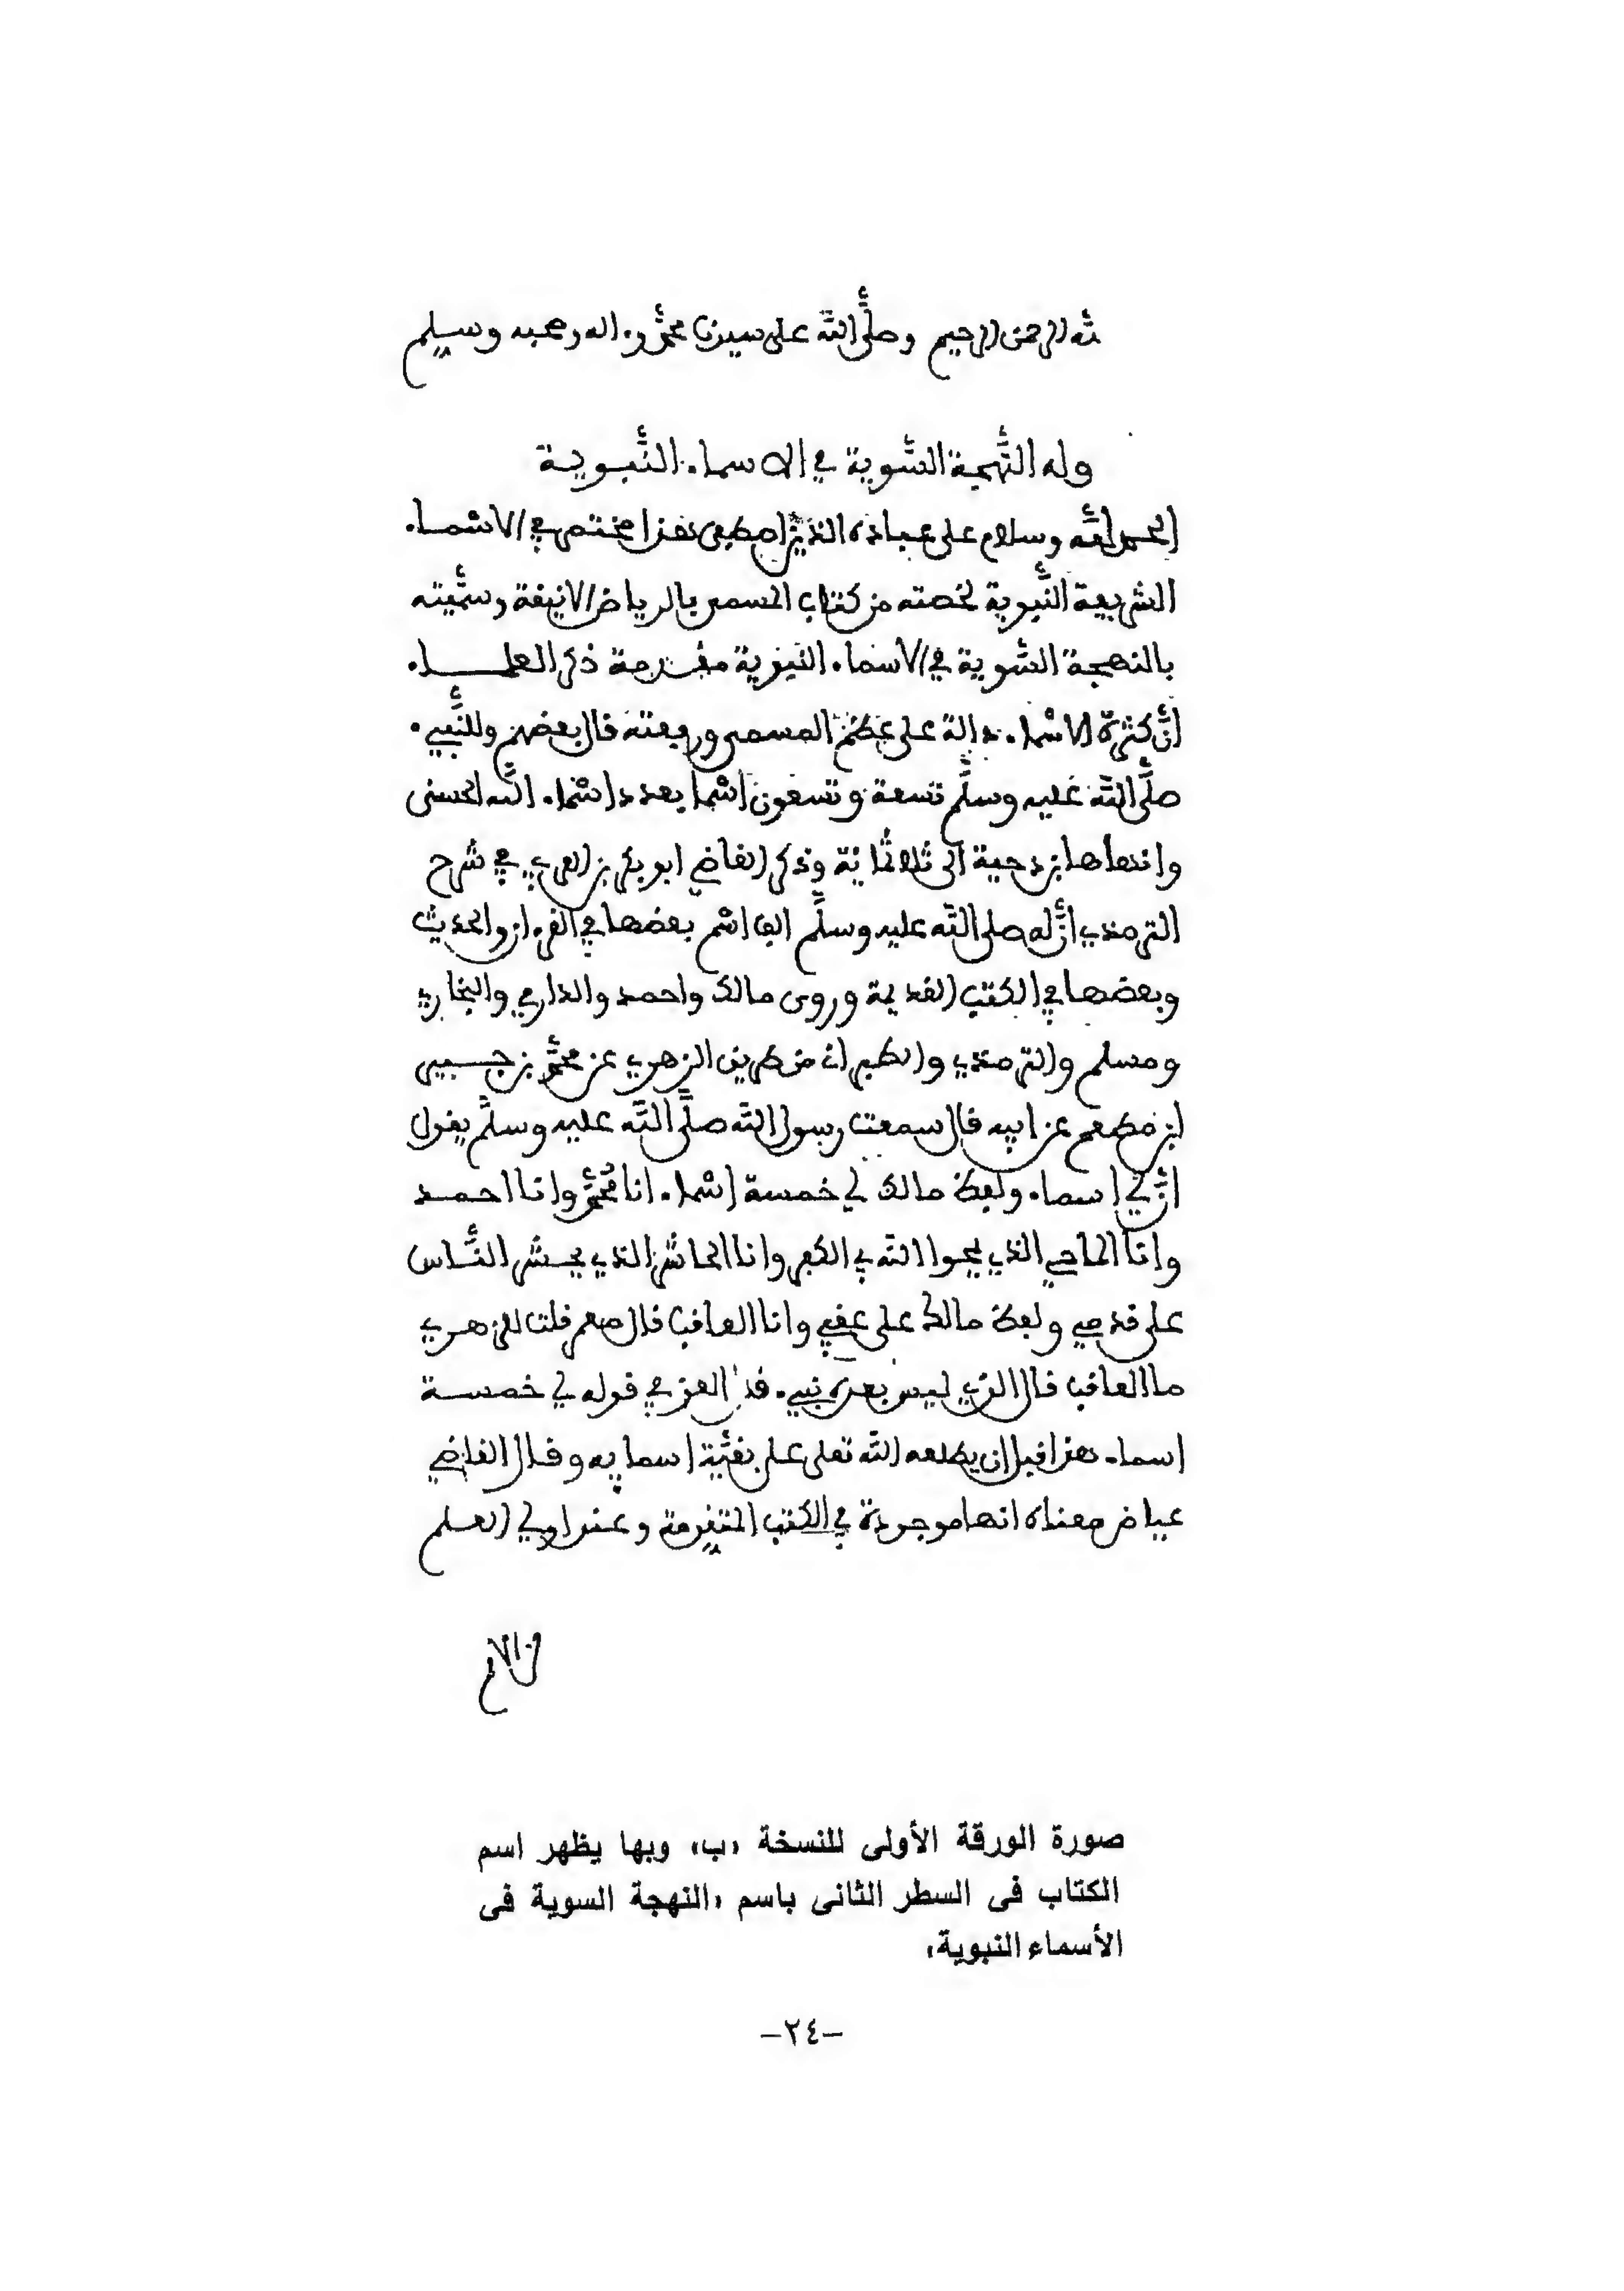 لله الرحمن الرحيم وصلى الله على سيدنا محمد وءاله وصحبه وسلم
وله النهجة السوية في الاسماء النبوية
الحمد لله وسلام على عباده الذين اصطفى هذا مختصر في الاسماء
الشريفة النبوية لخصته من كتاب المسمى بالرياض الانيفة وسميته
بالنهجة السوية في الاسماء النبوية مقدمة ذكر العلماء
أن كثرة الاسماء دالة على عظم المسمى ورفعته قال بعضهم وللنبي
صلى الله عليه وسلم تسعة وتسعون اسما بعدد اسماء الله الحسنى
وانهاها ابن دحية الى ثلاثمائة وذكر القاضي ابو بكر بن العربي في شرح
الترمذي أن له صلى الله عليه وسلم الف اسم بعضها في القرءان والحديث
وبعضها في الكتب القديمة وروى مالك واحمد والدارمي والبخاري
ومسلم والترمذي والطبراني من طريق الزهري عن محمد بن جبير
ابن مطعم عن ابيه قال سمعت رسول الله صلى الله عليه وسلم يقول
ان لي اسماء ولفظ مالك لي خمسة اسماء انا محمد وانا احمد
وانا الماحي الذي يمحوا الله بي الكفر وانا الحاشر الذي يحشر الناس
على قدمي ولفظ مالك على عقبي وانا العاقب قال معمر قلت للزهري
ما العاقب قال الذي ليس بعده نبي قال العزفي قوله لي خمسة
اسماء هذا قبل ان يطلعه الله تعلى على بقية اسمايه وقال القاضي
عياض معناه انها موجودة في الكتب المتقدمة وعند اولي العلم
من الامم
صورة الورقة الأولى للنسخة «ب» وبها يظهر اسم
الكتاب فى السطر الثانى باسم «النهجة السوية فى
الأسماء النبوية»
-٢٤-